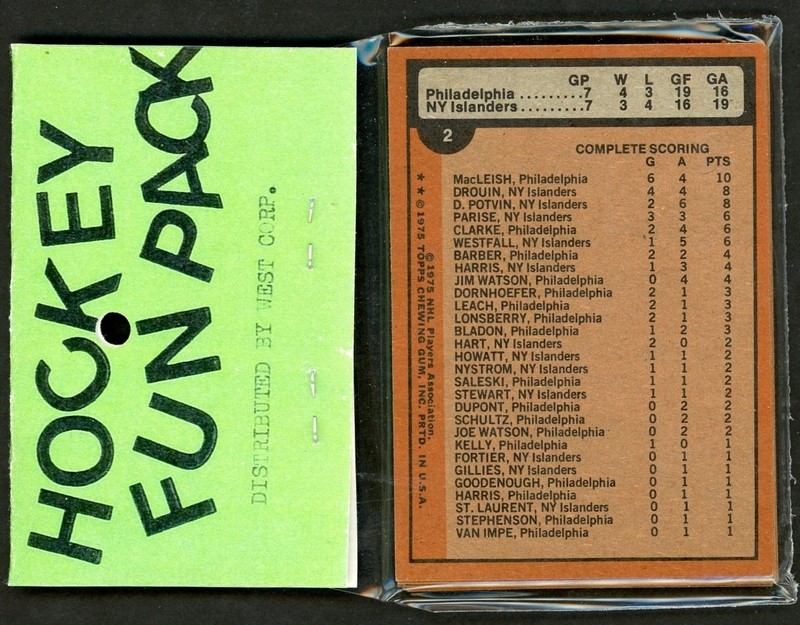 HOCKEY
FUN PACK
DISTRIBUTED BY WEST CORP.
GP W L GF GA
Philadelphia .........7 4 3 19 16
NY Islanders .........7 3 4 16 19
2
COMPLETE SCORING
G A PTS
MacLEISH, Philadelphia 6 4 10
DROUIN, NY Islanders 4 4 8
D. POTVIN, NY Islanders 2 6 8
PARISE, NY Islanders 3 3 6
CLARKE, Philadelphia 2 4 6
WESTFALL, NY Islanders 1 5 6
BARBER, Philadelphia 2 2 4
HARRIS, NY Islanders 1 3 4
JIM WATSON, Philadelphia 0 4 4
DORNHOEFER, Philadelphia 2 1 3
LEACH, Philadelphia 2 1 3
LONSBERRY, Philadelphia 2 1 3
BLADON, Philadelphia 1 2 3
HART, NY Islanders 2 0 2
HOWATT, NY Islanders 1 1 2
NYSTROM, NY Islanders 1 1 2
SALESKI, Philadelphia 1 1 2
STEWART, NY Islanders 1 1 2
DUPONT, Philadelphia 0 2 2
SCHULTZ, Philadelphia 0 2 2
JOE WATSON, Philadelphia 0 2 2
KELLY, Philadelphia 1 0 1
FORTIER, NY Islanders 0 1 1
GILLIES, NY Islanders 0 1 1
GOODENOUGH, Philadelphia 0 1 1
HARRIS, Philadelphia 0 1 1
ST. LAURENT, NY Islanders 0 1 1
STEPHENSON, Philadelphia 0 1 1
VAN IMPE, Philadelphia 0 1 1
©1975 NHL Players Association.
★★ ©1975 TOPPS CHEWING GUM, INC. PRTD. IN U.S.A.